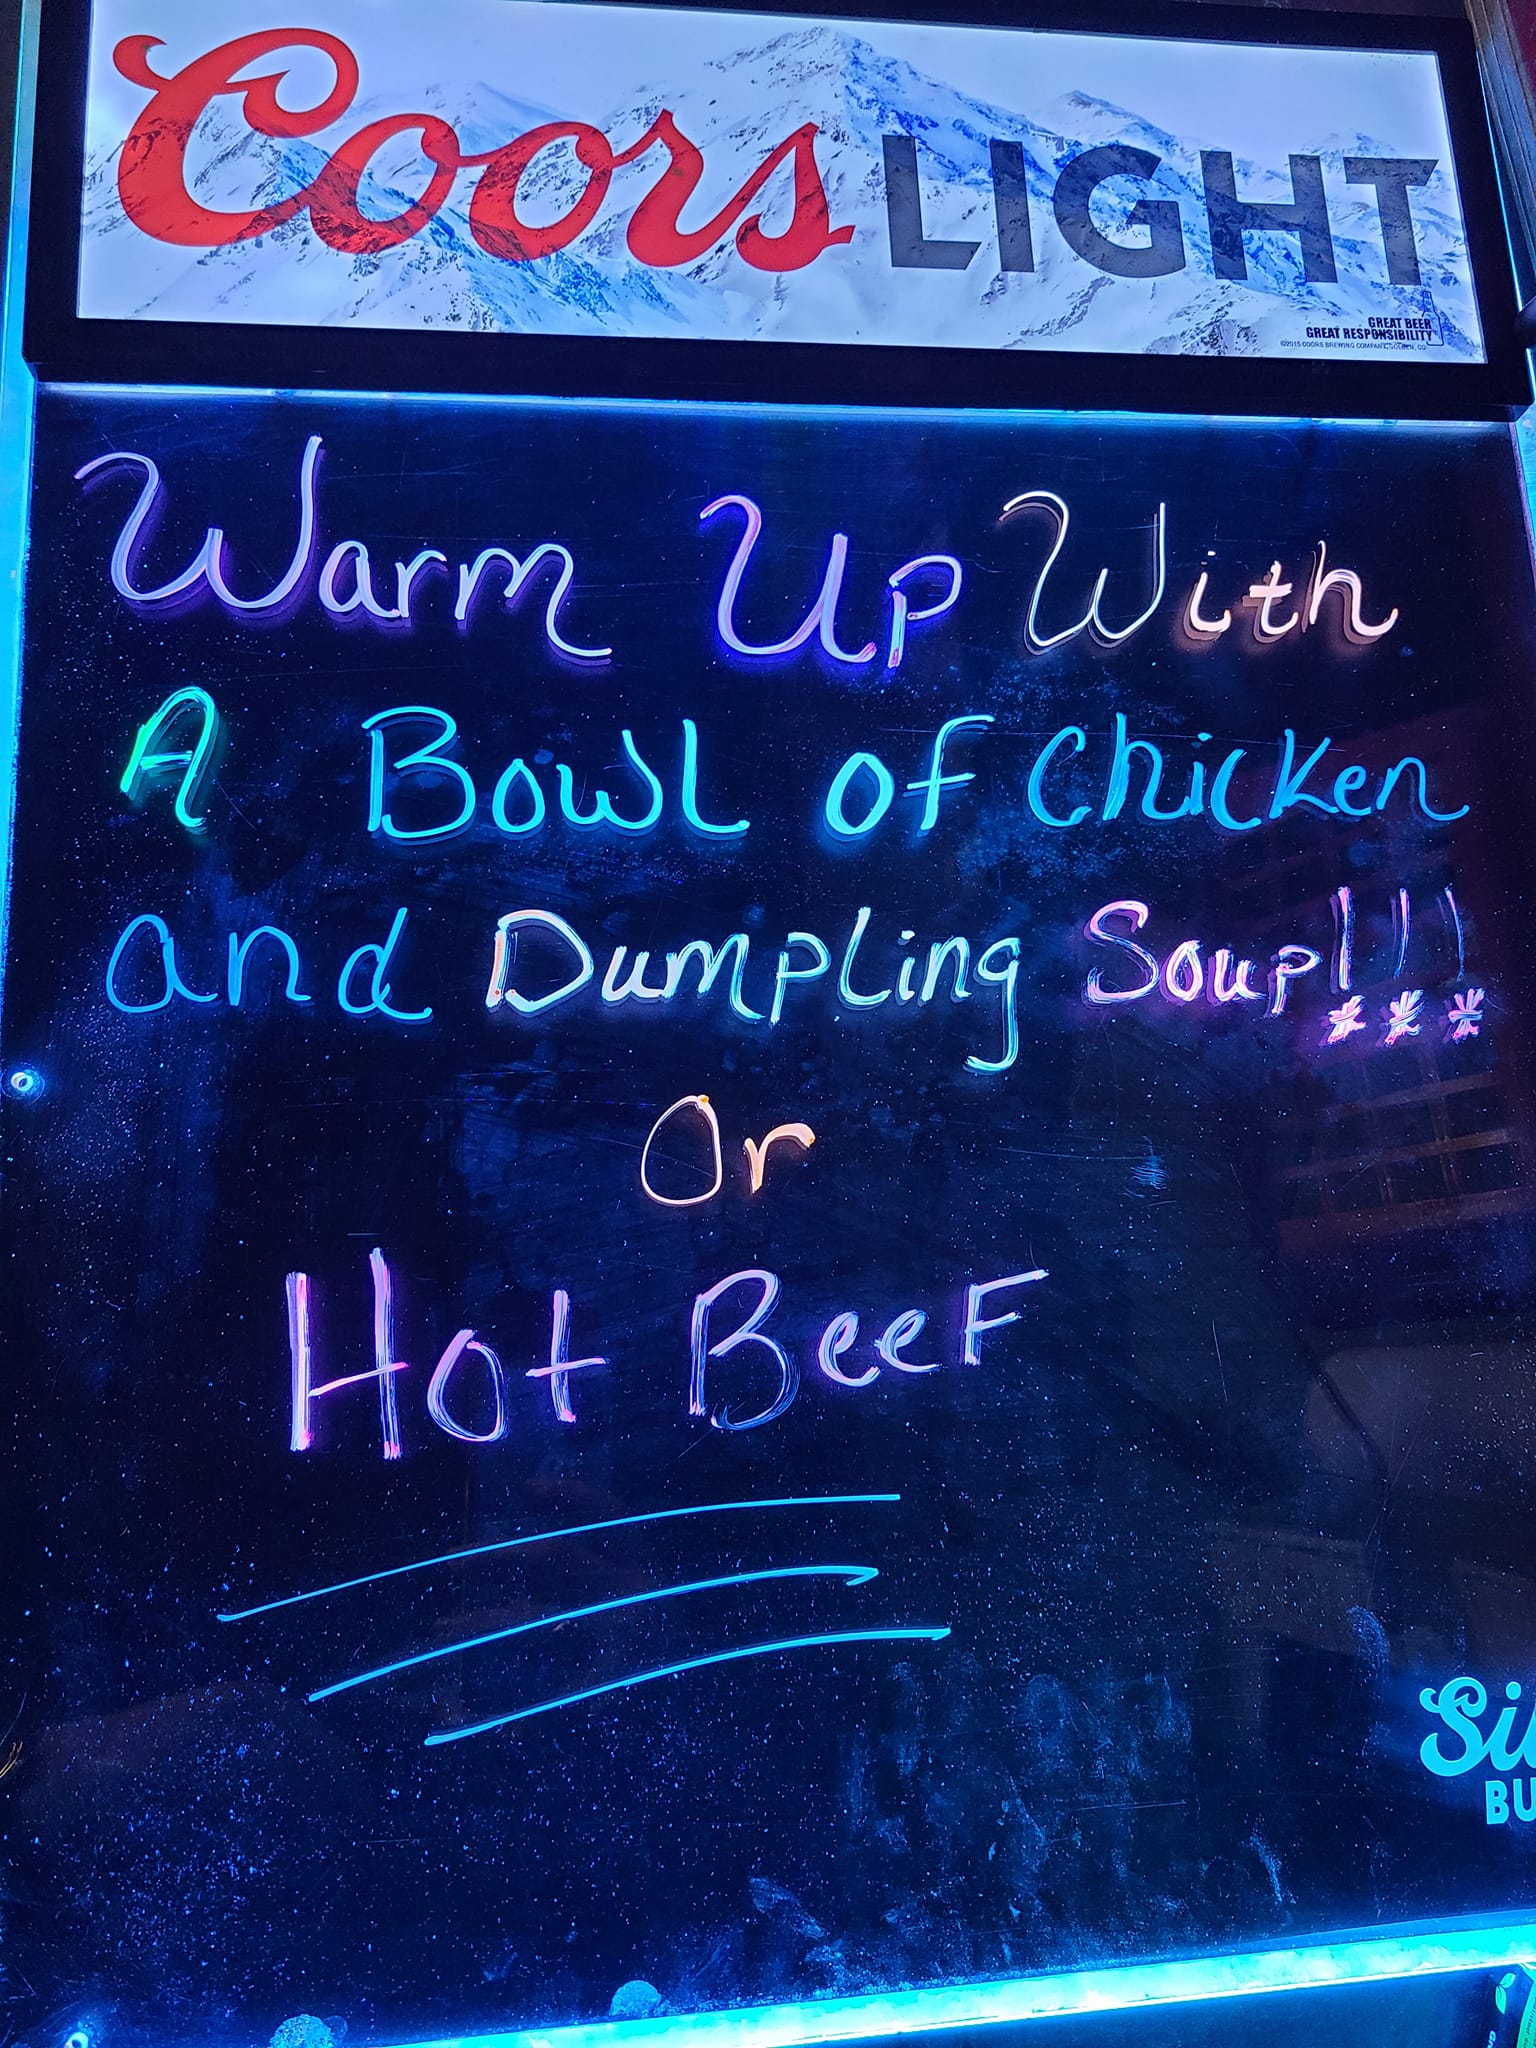 Coors LIGHT
GREAT BEER
GREAT RESPONSIBILITY
©2015 COORS BREWING COMPANY, GOLDEN, CO
Warm Up With
A Bowl of Chicken
and Dumpling Soup!!!
Or
Hot Beef